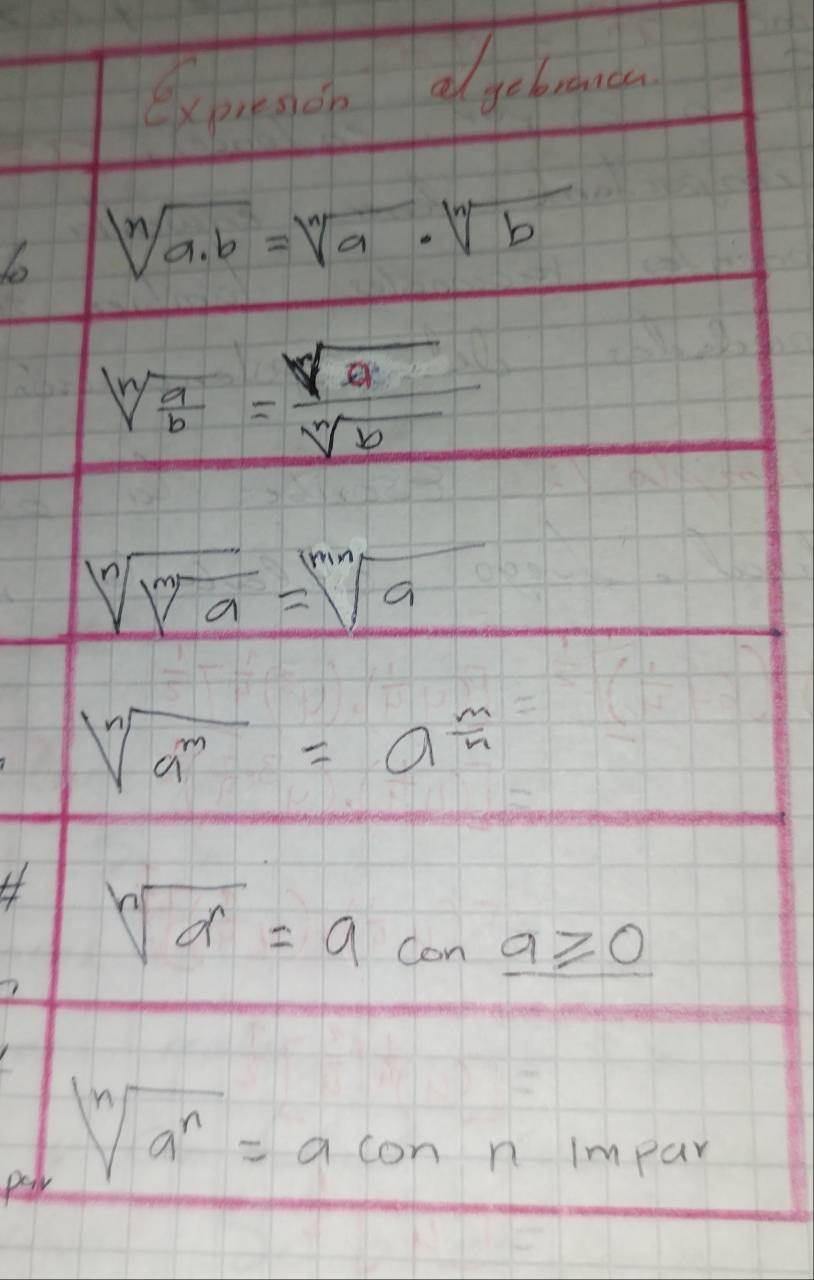 Expresión algebraica.
ⁿ√a.b = ⁿ√a · ⁿ√b
ⁿ√(a/b) = ⁿ√a / ⁿ√b
ⁿ√ᵐ√a = ᵐⁿ√a
ⁿ√aᵐ = a^(m/n)
#
ⁿ√aⁿ = a con a ≥ 0
ⁿ√aⁿ = a con n impar
par